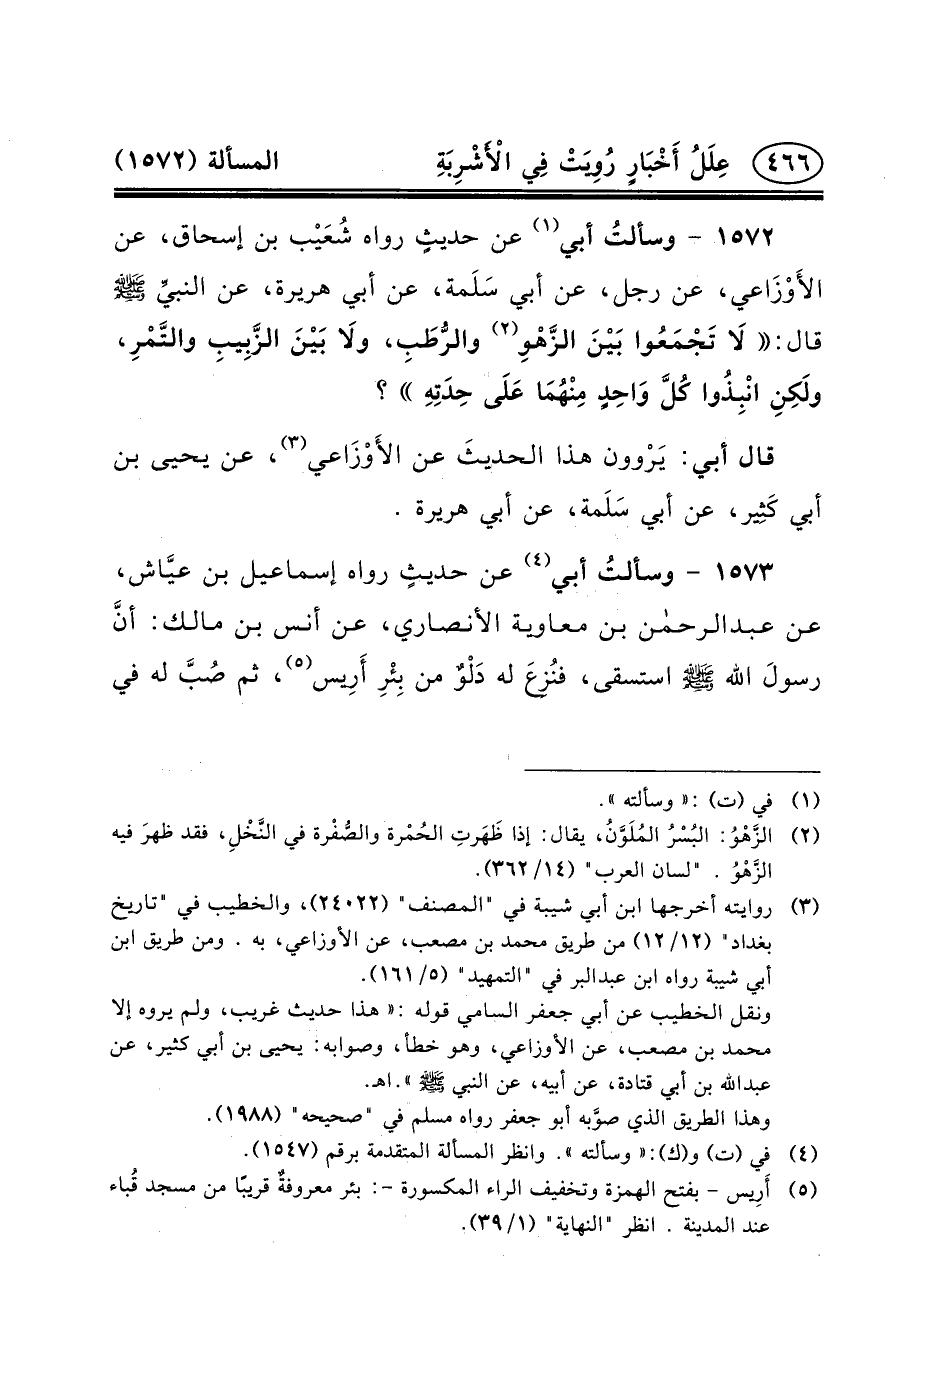 ٤٦٦ عِلَلُ أَخْبَارٍ رُوِيَتْ فِي الْأَشْرِبَةِ المسألة (١٥٧٢)
١٥٧٢ - وسألتُ أبي(١) عن حديثٍ رواه شُعَيْب بن إسحاق، عن
الأَوْزَاعي، عن رجل، عن أبي سَلَمة، عن أبي هريرة، عن النبيِّ ﷺ
قال: « لَا تَجْمَعُوا بَيْنَ الزَّهْوِ(٢) والرُّطَبِ، ولَا بَيْنَ الزَّبِيبِ والتَّمْرِ،
ولَكِنِ انْبِذُوا كُلَّ وَاحِدٍ مِنْهُمَا عَلَى حِدَتِهِ » ؟
قال أبي: يَرْوون هذا الحديثَ عن الأَوْزَاعي(٣)، عن يحيى بن
أبي كَثِير، عن أبي سَلَمة، عن أبي هريرة .
١٥٧٣ - وسألتُ أبي(٤) عن حديثٍ رواه إسماعيل بن عيَّاش،
عن عبدالرحمٰن بن معاوية الأنصاري، عن أنس بن مالك: أنَّ
رسولَ الله ﷺ استسقى، فنُزِعَ له دَلْوٌ من بِئْرِ أَرِيس(٥)، ثم صُبَّ له في
(١) في (ت) : « وسألته ».
(٢) الزَّهْوُ: البُسْرُ المُلَوَّنُ، يقال: إذا ظَهَرَتِ الحُمْرة والصُّفْرة في النَّخْلِ، فقد ظهرَ فيه
الزَّهْوُ . "لسان العرب" (٣٦٢/١٤).
(٣) روايته أخرجها ابن أبي شيبة في "المصنف" (٢٤٠٢٢)، والخطيب في "تاريخ
بغداد" (١٢/١٢) من طريق محمد بن مصعب، عن الأوزاعي، به . ومن طريق ابن
أبي شيبة رواه ابن عبدالبر في "التمهيد" (١٦١/٥).
ونقل الخطيب عن أبي جعفر السامي قوله : « هذا حديث غريب، ولم يروه إلا
محمد بن مصعب، عن الأوزاعي، وهو خطأ، وصوابه: يحيى بن أبي كثير، عن
عبدالله بن أبي قتادة، عن أبيه، عن النبي ﷺ ».اهـ.
وهذا الطريق الذي صوَّبه أبو جعفر رواه مسلم في "صحيحه" (١٩٨٨).
(٤) في (ت) و(ك): « وسألته ». وانظر المسألة المتقدمة برقم (١٥٤٧).
(٥) أَرِيس - بفتح الهمزة وتخفيف الراء المكسورة -: بئر معروفةٌ قريبًا من مسجد قُباء
عند المدينة . انظر "النهاية" (٣٩/١).